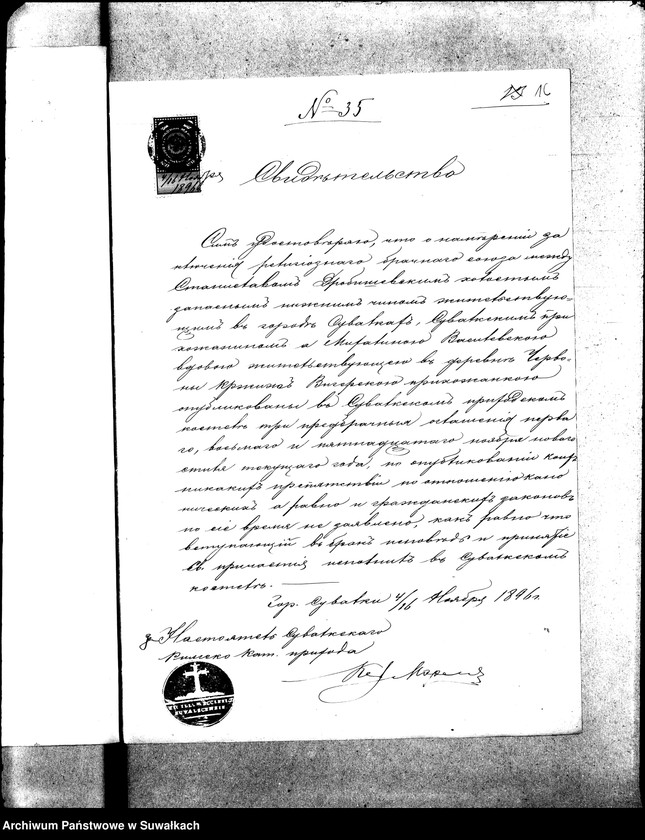 № 35
16
4/16 Ноября
1896
Свидѣтельство
Симъ удостовѣряю, что о намѣреніи за
ключенія религіознаго брачнаго союза между
Станиславомъ Дробишевскимъ холостымъ
запаснымъ нижнимъ чиномъ жительствую-
щимъ въ городѣ Сувалкахъ, Сувалкскимъ при
хожаниномъ а Василевскою
вдовою жительствующею въ деревнѣ Черво-
ны Кржижъ Вигерскою прихожанкою
опубликованы въ Сувалкскомъ приходскомъ
костелѣ три предбрачныя оглашенія перва
го, восьмаго и пятнадцатаго ноября новаго
стиля текущаго года, по опубликованіи коихъ
никакихъ препятствій по отношенію кано
ническихъ а равно и гражданскихъ законовъ
по сіе время не заявлено, какъ равно что
вступающій въ бракъ исповѣдь и принятіе
Св. причастія исполнилъ въ Сувалкскомъ
костелѣ.
Гор. Сувалки 4/16 Ноября 1896 г.
Настоятель Сувалкскаго
Римско Кат. прихода
Кс.
Archiwum Państwowe w Suwałkach